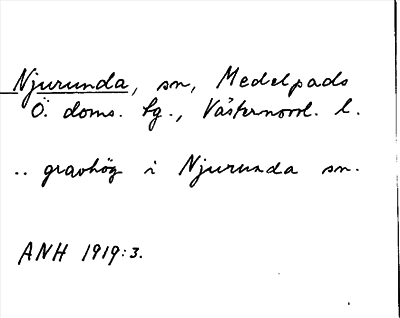 Njurunda, sn, Medelpads
Ö. doms. sg., Västernorrl. l.
.. gravhög i Njurunda sn.
ANH 1919:3.